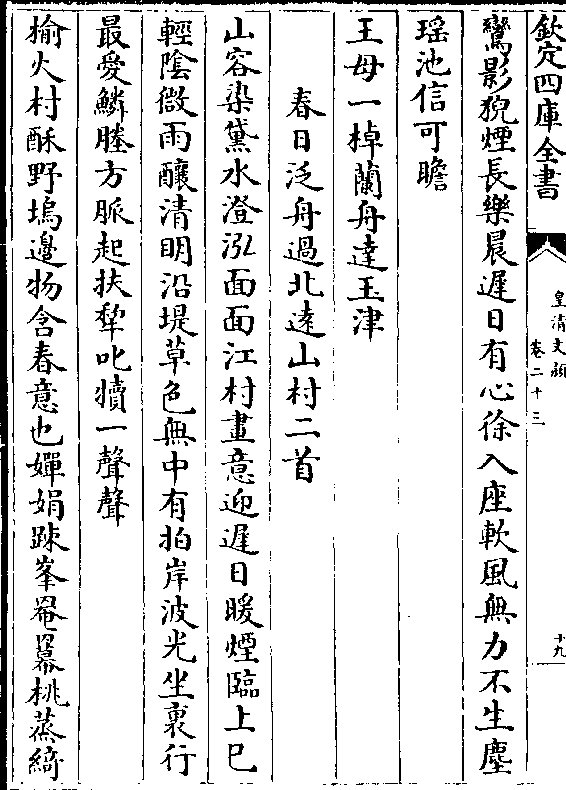 欽定四庫全書
皇清文穎
卷二十三
十九
鸞影猊煙長樂晨遲日有心徐入座軟風無力不生塵
瑤池信可瞻
王母一棹蘭舟達玉津
春日泛舟過北遠山村二首
山容染黛水澄泓面面江村畫意迎遲日暖煙臨上巳
輕陰微雨釀清明沿堤草色無中有拍岸波光坐裏行
最愛鱗塍方脈起扶犂叱犢一聲聲
榆火村酥野塢邊物含春意也嬋娟踈峯罨冪桃蒸綺